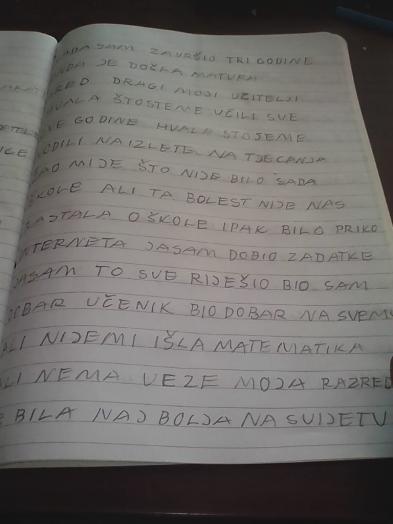 KADA SAM ZAVRŠIO TRI GODINE
ONDA JE DOŠLA MATURA
RED. DRAGI MOJI UČITELJI
HVALA ŠTOSTEME UČILI SVE
VE GODINE HVALA STOSEME
VODILI NAIZLETE NA TJECANJA
ŽAO MIJE ŠTO NIJE BILO SADA
ŠKOLE ALI TA BOLEST NIJE NAS
RASTALA OŠKOLE IPAK BILO PRIKO
INTERNETA JASAM DOBIO ZADATKE
JASAM TO SVE RIJEŠIO BIO SAM
DOBAR UČENIK BIO DOBAR NA SVEMU
ALI NIJEMI IŠLA MATEMATIKA
ALI NEMA VEZE MOJA RAZRED
BILA NAJ BOLJA NA SVIJETU